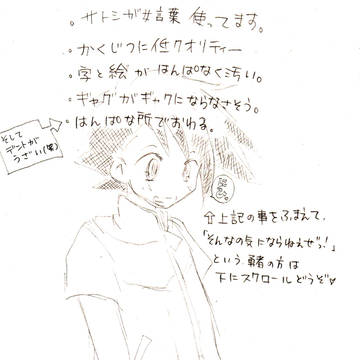 。サトシが女言葉使ってます。
。かくじつに低クオリティー
。字と絵がはんぱなく汚い。
。ギャグがギャクにならなさそう。
。はんぱな所でおわる。
そして
デントが
うざい(笑)
⇧上記の事をふまえて、
「そんなの気にならねぇぜっ!」
という勇者の方は
下にスクロールどうぞ♥